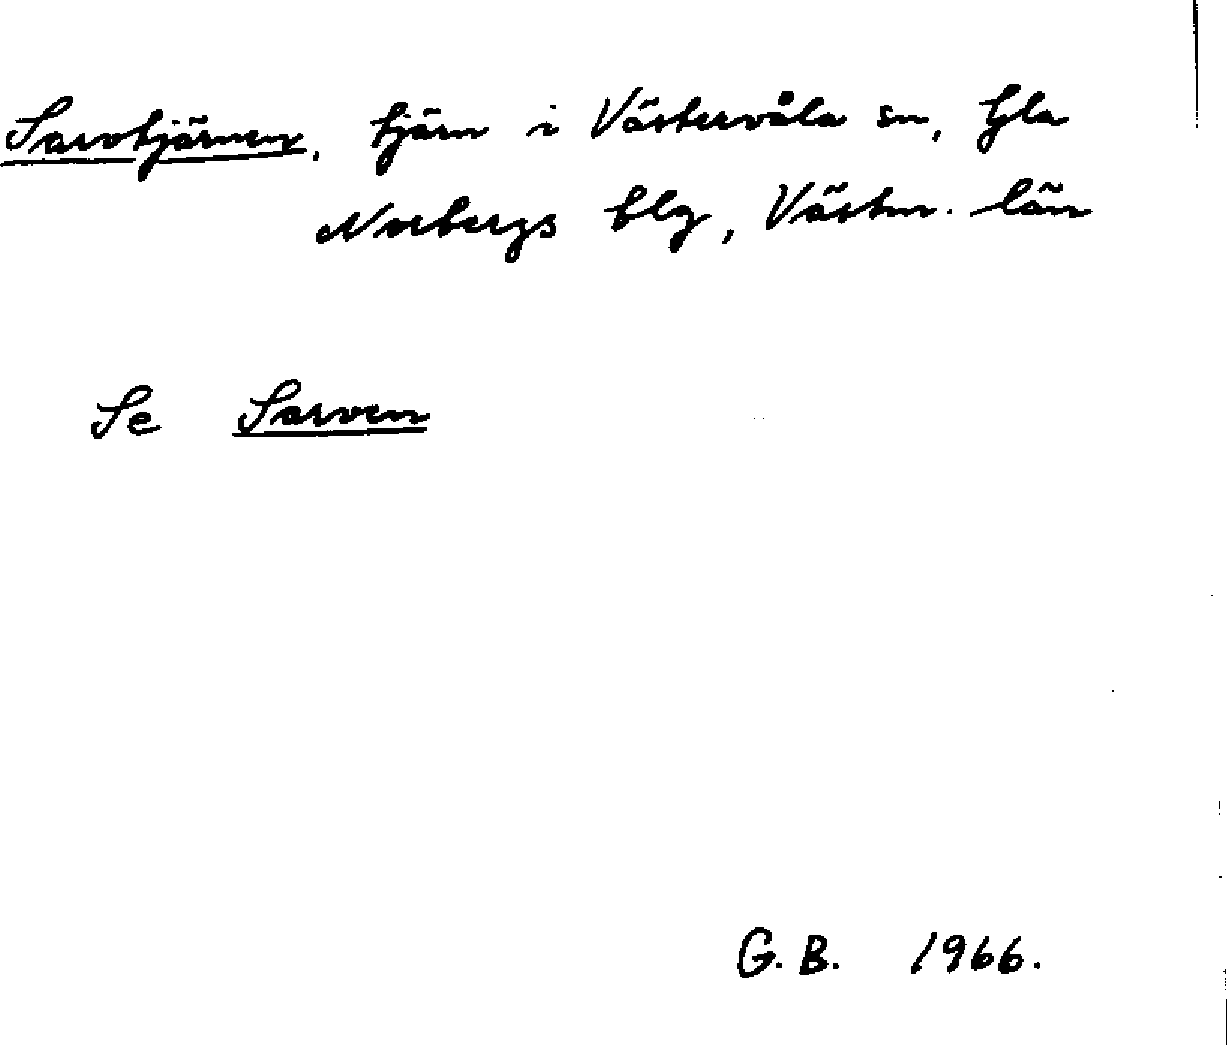 Sarvtjärnen, tjärn i Västervåla sn, Gla
Norbergs blg, Västm. län
Se Sarven
G. B. 1966.